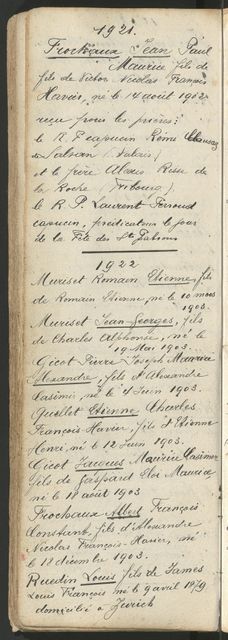 1921.
Frochaux Jean Paul
Maurice fils de
fils de Victor Nicolas François
Xavier, né le 14 août 1902
reçu pour les prières:
le R. P. capucin Rémi
de Salvan (Valais)
et le frère Alexis Risse de
la Roche (Fribourg)
le R. P. Laurent
capucin, prédicateur le jour
de la Fête des Sts Patrons
1922
Muriset Romain Etienne, fils
de Romain Etienne, né le 10 mars
1903.
Muriset Jean-Georges, fils
de Charles Alphonse, né le
19 Mai 1903.
Gicot Pierre-Joseph Maurice
Alexandre, fils d'Alexandre
Casimir, né le 4 Juin 1903.
Quellet Etienne Charles
François Xavier, fils d'Etienne
Henri, né le 12 Juin 1903.
Gicot Jacques Maurice Casimir
fils de Gaspard Eloi Maurice
né le 18 août 1903
Frochaux Albert François
Constant fils d'Alexandre
Nicolas François-Xavier, né
le 18 décembre 1903.
Ruedin Louis fils de James
Louis François né le 9 avril 1879
domicilié à Zurich